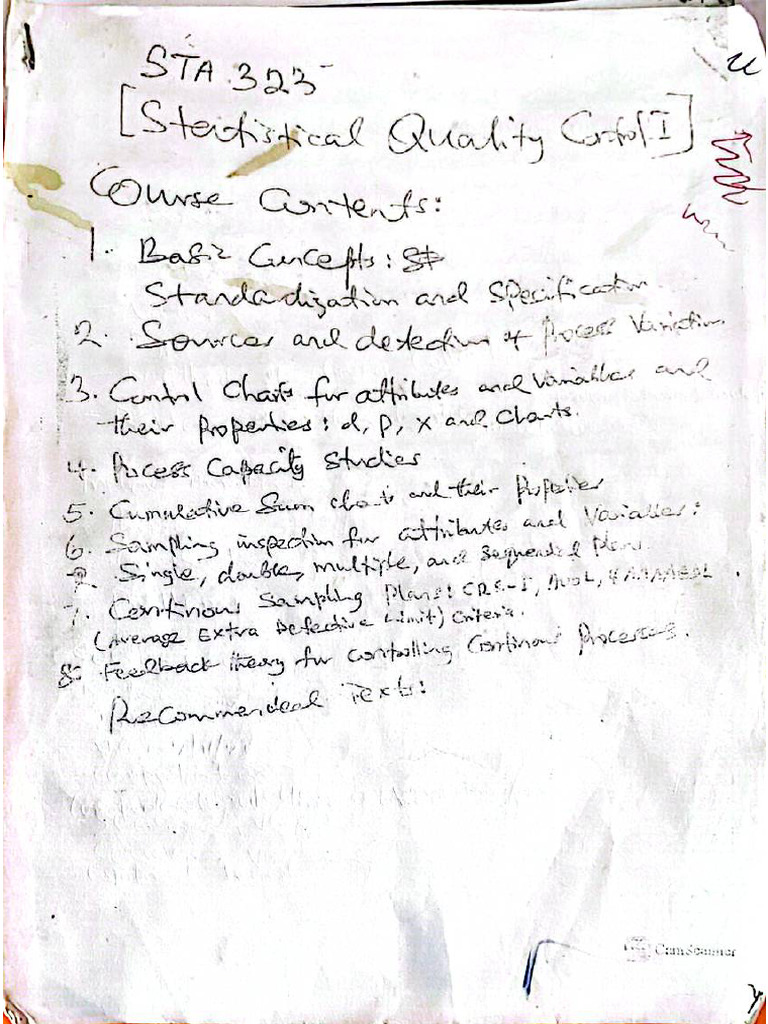 STA 323
[Statistical Quality Control I]
Course Contents:
1. Basic Concepts: St
Standardization and Specification.
2. Sources and detection of Process Variation.
3. Control Charts for attributes and Variables and
their Properties: d, P, X and Charts.
4. Process Capacity Studies
5. Cumulative Sum charts and their Properties
6. Sampling inspection for attributes and Variables:
Single, double, multiple, and Sequential Plans.
7. Continous Sampling Plans:
(Average Extra Defective Limit) Criteria.
8: Feedback theory for controlling Continous Processes.
Recommended Texts:
CamScanner